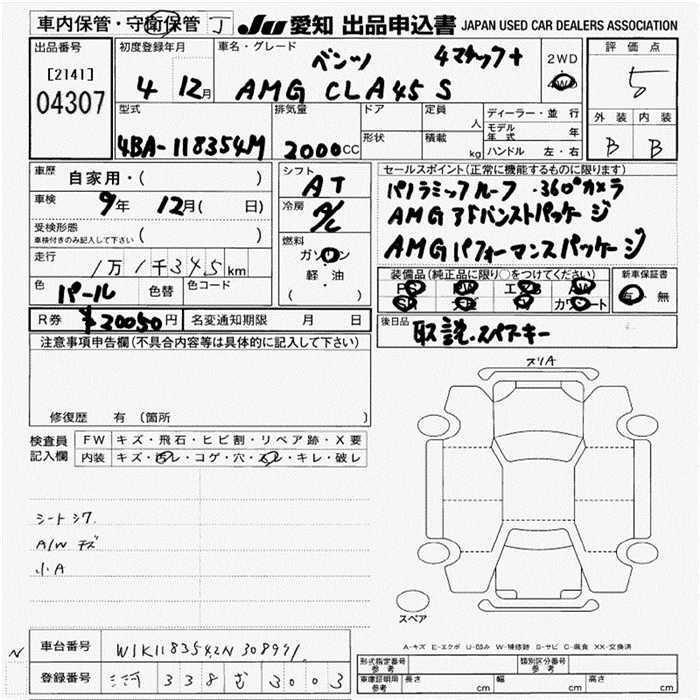 車内保管・守衛保管 J JU 愛知 出品申込書 JAPAN USED CAR DEALERS ASSOCIATION
出品番号 初度登録年月 車名・グレード ベンツ 4マチック+ 2WD 評価点
[2141] 4 12月 AMG CLA45 S 4WD 5
04307 型式 排気量 ドア 定員 人 ディーラー・並行 外装 内装
4BA-118354M 2000CC 形状 積載 kg モデル年式 年 B B
ハンドル 左・右
車歴 自家用・( ) シフト AT セールスポイント(正常に機能するものに限ります)
車検 9年 12月( 日) 冷房 A/C パノラミックルーフ・360°カメラ
受検形態 ( ) AMGアドバンストパッケージ
車検付きのみ記入して下さい 燃料 ガソリン AMGパフォーマンスパッケージ
走行 1万1千345km 軽・油 装備品(純正品に限り○をつけてください) 新車保証書
色 パール 色替 色コード ( ・ ) PS PW エアB AW 有・無
SR ナビ カワシート
R券 ¥20050円 名変通知期限 月 日 後日品 取説・スペアキー
注意事項申告欄(不具合内容等は具体的に記入して下さい)
スリA
修復歴 有(箇所 )
検査員記入欄 FW キズ・飛石・ヒビ割・リペア跡・X要
内装 キズ・汚レ・コゲ・穴・スレ・キレ・破レ
シートシワ
A/W キズ
小A
スペア
A-キズ E-エクボ U-凹み W-補修跡 S-サビ C-腐食 XX-交換済
N 車台番号 W1K1183542N308991 形式指定番号 参考 類別区分番号 参考
登録番号 三河 338 む 3003 車庫証明用 参考 長さ cm 幅 cm 高さ cm